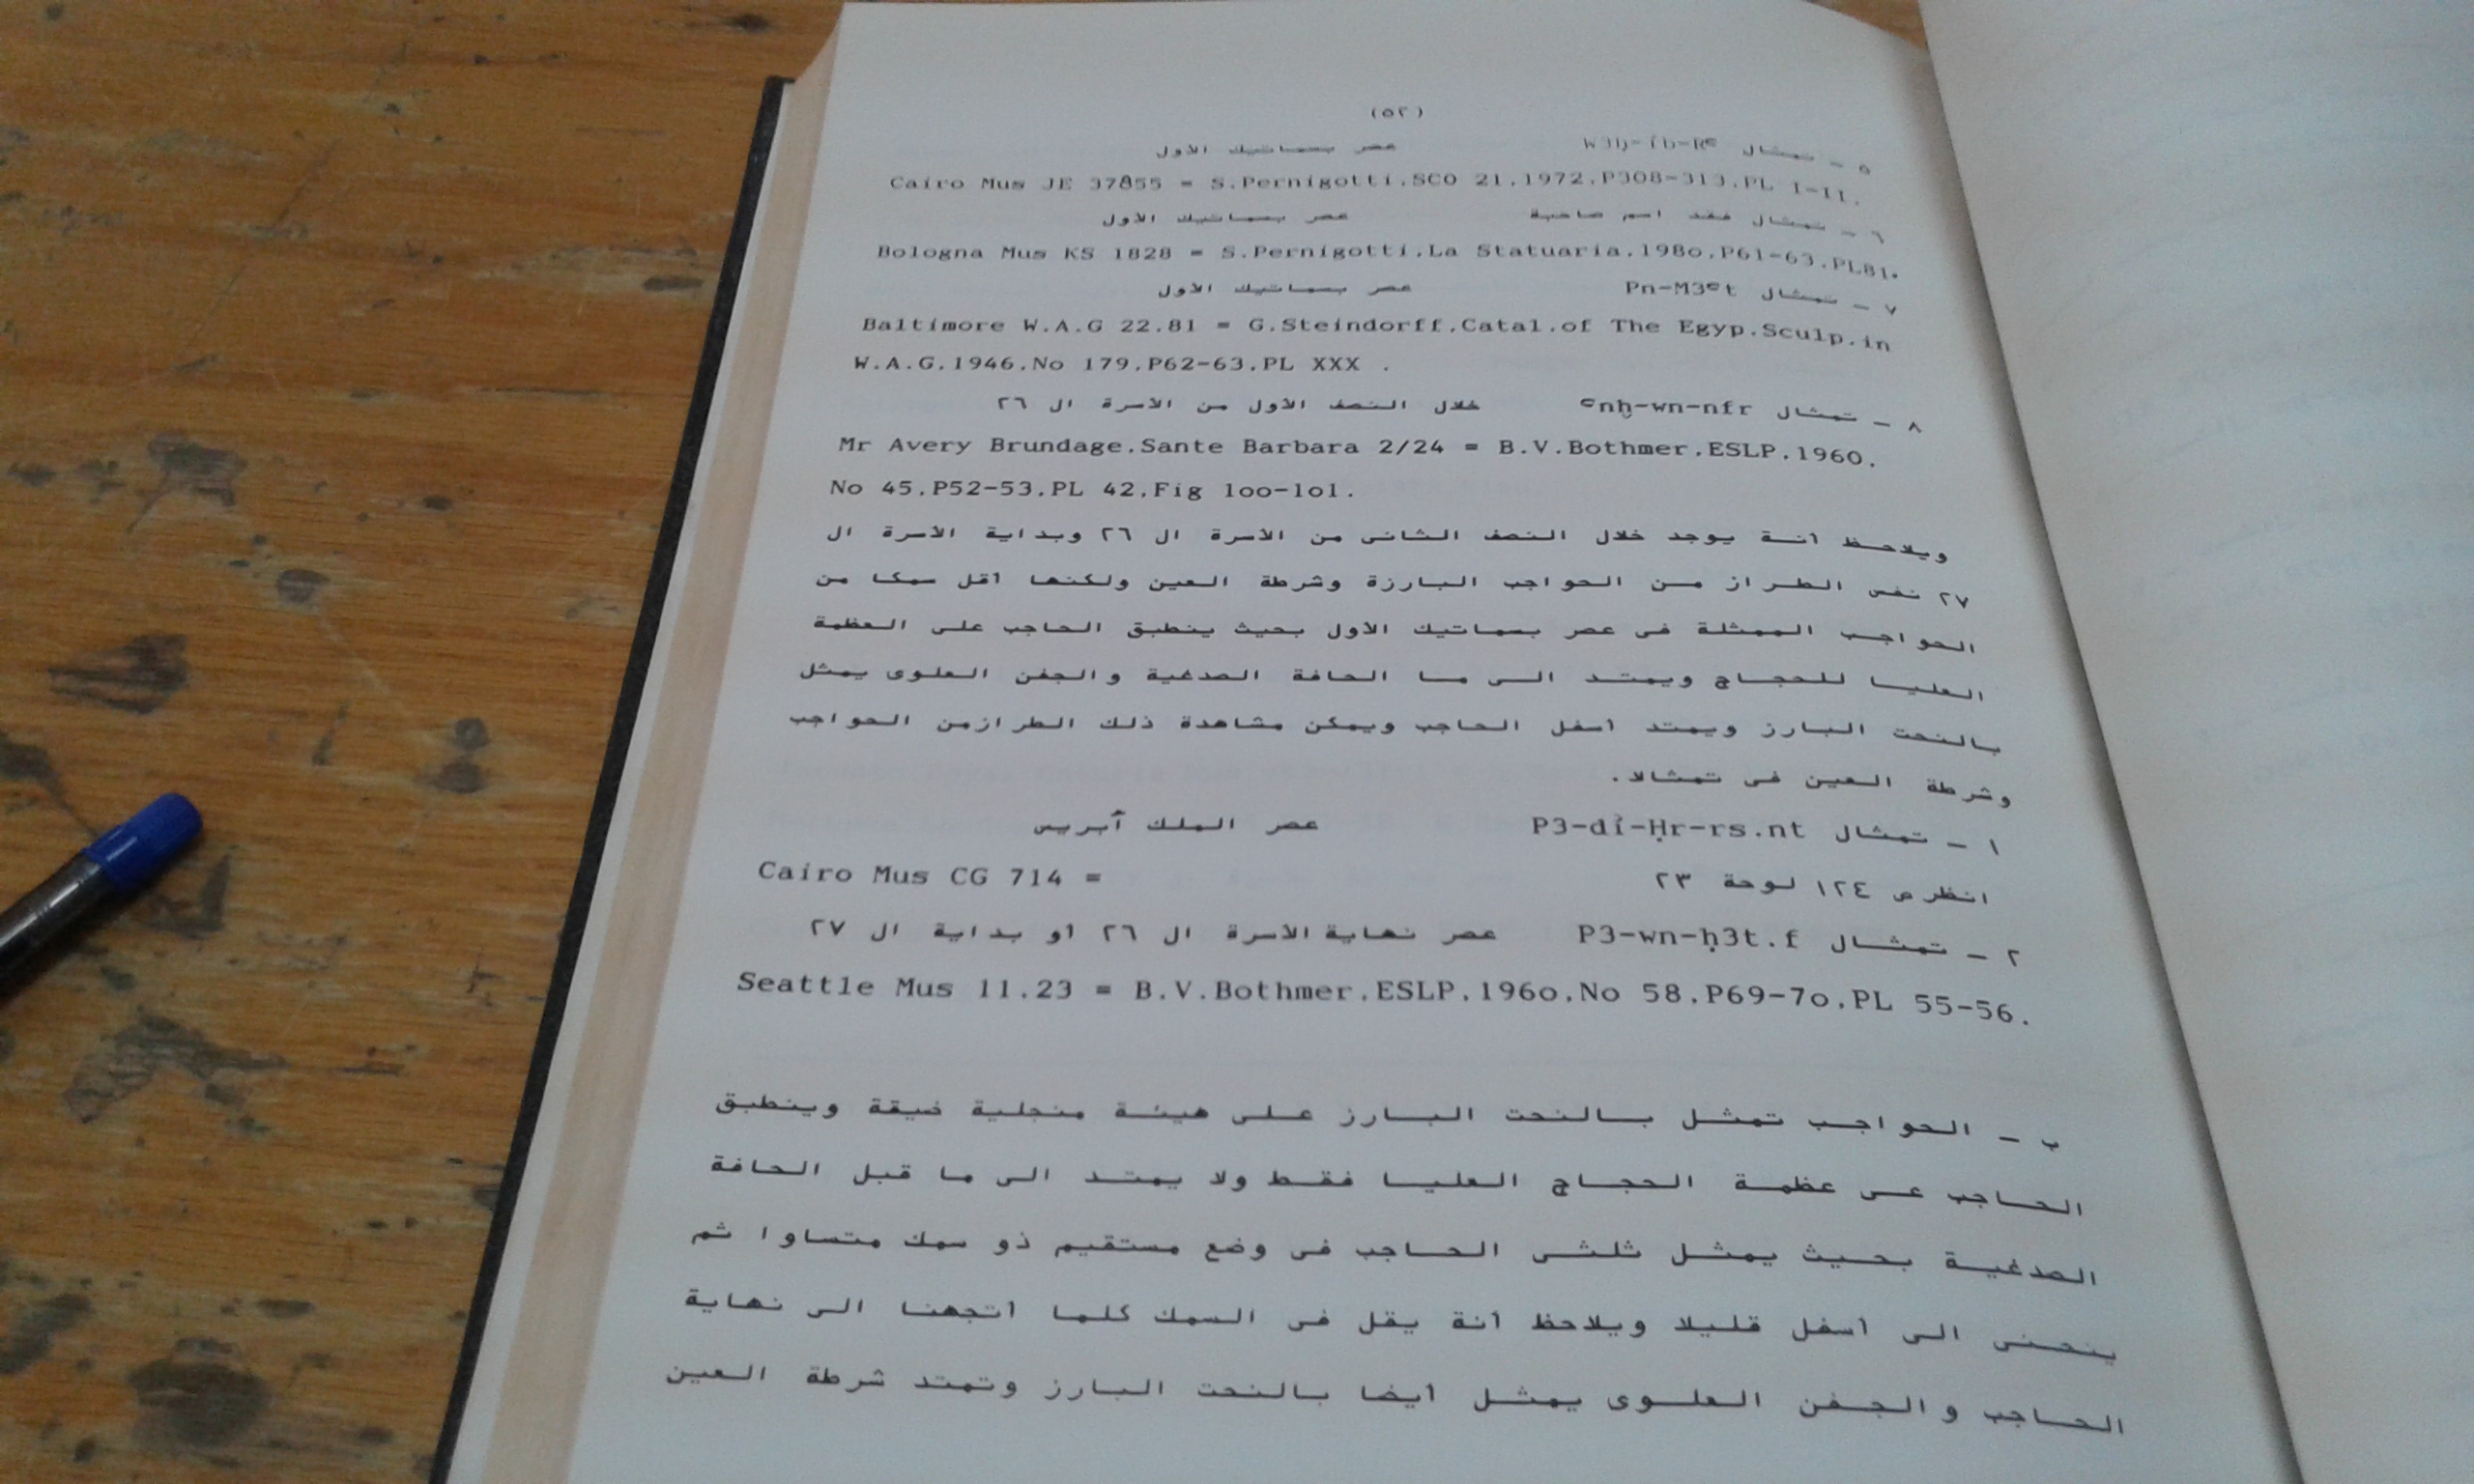 (٥٢)
٥ - تمثال W3ḥ-ỉb-Rᶜ عصر بسماتيك الأول
Cairo Mus JE 37855 = S.Pernigotti.SCO 21.1972.P308-313.PL I-II.
٦ - تمثال فقد اسم صاحبة عصر بسماتيك الأول
Bologna Mus KS 1828 = S.Pernigotti.La Statuaria.198o.P61-63.PL81.
٧ - تمثال Pn-M3ᶜt عصر بسماتيك الأول
Baltimore W.A.G 22.81 = G.Steindorff.Catal.of The Egyp.Sculp.in
W.A.G.1946.No 179.P62-63.PL XXX .
٨ - تمثال ᶜnḫ-wn-nfr خلال النصف الأول من الأسرة ال ٢٦
Mr Avery Brundage.Sante Barbara 2/24 = B.V.Bothmer.ESLP.1960.
No 45.P52-53.PL 42.Fig loo-lol.
ويلاحظ أنة يوجد خلال النصف الثانى من الأسرة ال ٢٦ وبداية الأسرة ال
٢٧ نفس الطراز من الحواجب البارزة وشرطة العين ولكنها أقل سمكا من
الحواجب الممثلة فى عصر بسماتيك الأول بحيث ينطبق الحاجب على العظمة
العليا للحجاج ويمتد الى ما الحافة الصدغية والجفن العلوى يمثل
بالنحت البارز ويمتد أسفل الحاجب ويمكن مشاهدة ذلك الطرازمن الحواجب
وشرطة العين فى تمثالا .
١ - تمثال P3-dỉ-Ḥr-rs.nt عصر الملك أبريس
انظر ص ١٢٤ لوحة ٢٣ Cairo Mus CG 714 =
٢ - تمثال P3-wn-ḥ3t.f عصر نهاية الأسرة ال ٢٦ أو بداية ال ٢٧
Seattle Mus 11.23 = B.V.Bothmer.ESLP.196o.No 58.P69-7o.PL 55-56.
ب - الحواجب تمثل بالنحت البارز على هيئة منجلية ضيقة وينطبق
الحاجب عى عظمة الحجاج العليا فقط ولا يمتد الى ما قبل الحافة
الصدغية بحيث يمثل ثلثى الحاجب فى وضع مستقيم ذو سمك متساوا ثم
ينحنى الى أسفل قليلا ويلاحظ أنة يقل فى السمك كلما أتجهنا الى نهاية
الحاجب والجفن العلوى يمثل أيضا بالنحت البارز وتمتد شرطة العين